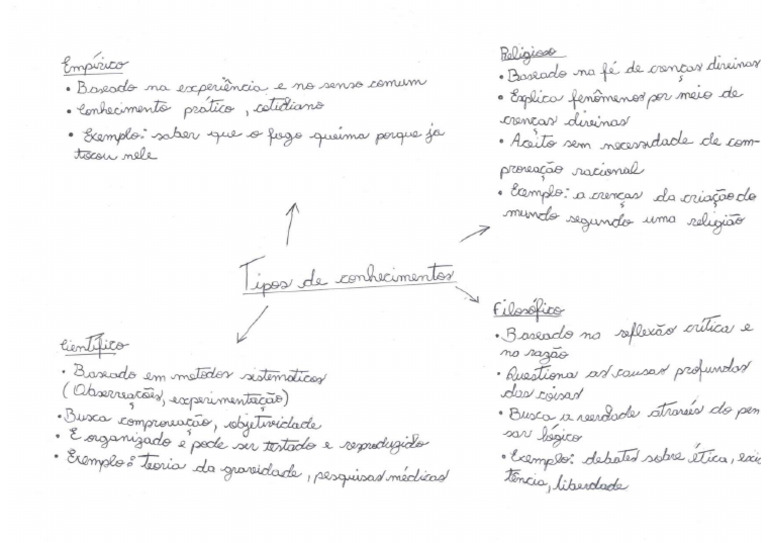 Empírico
• Baseado na experiência e no senso comum
• Conhecimento prático, cotidiano
• Exemplo: saber que o fogo queima porque já
tocou nele
Religioso
• Baseado na fé de crenças divinas
• Explica fenômenos por meio de
crenças divinas
• Aceito sem necessidade de com-
provação racional
• Exemplo: a crenças da criação do
mundo segundo uma religião
Tipos de conhecimentos
Científico
• Baseado em metodos sistematicos
(Observações, experimentação)
• Busca comprovação, objetividade
• É organizado e pode ser testado e reproduzido
• Exemplo: teoria da gravidade, pesquisas médicas
Filosófico
• Baseado na reflexão crítica e
na razão
• Questiona as causas profundas
das coisas
• Busca a verdade através do pen
sar lógico
• Exemplo: debates sobre ética, exis
tência, liberdade